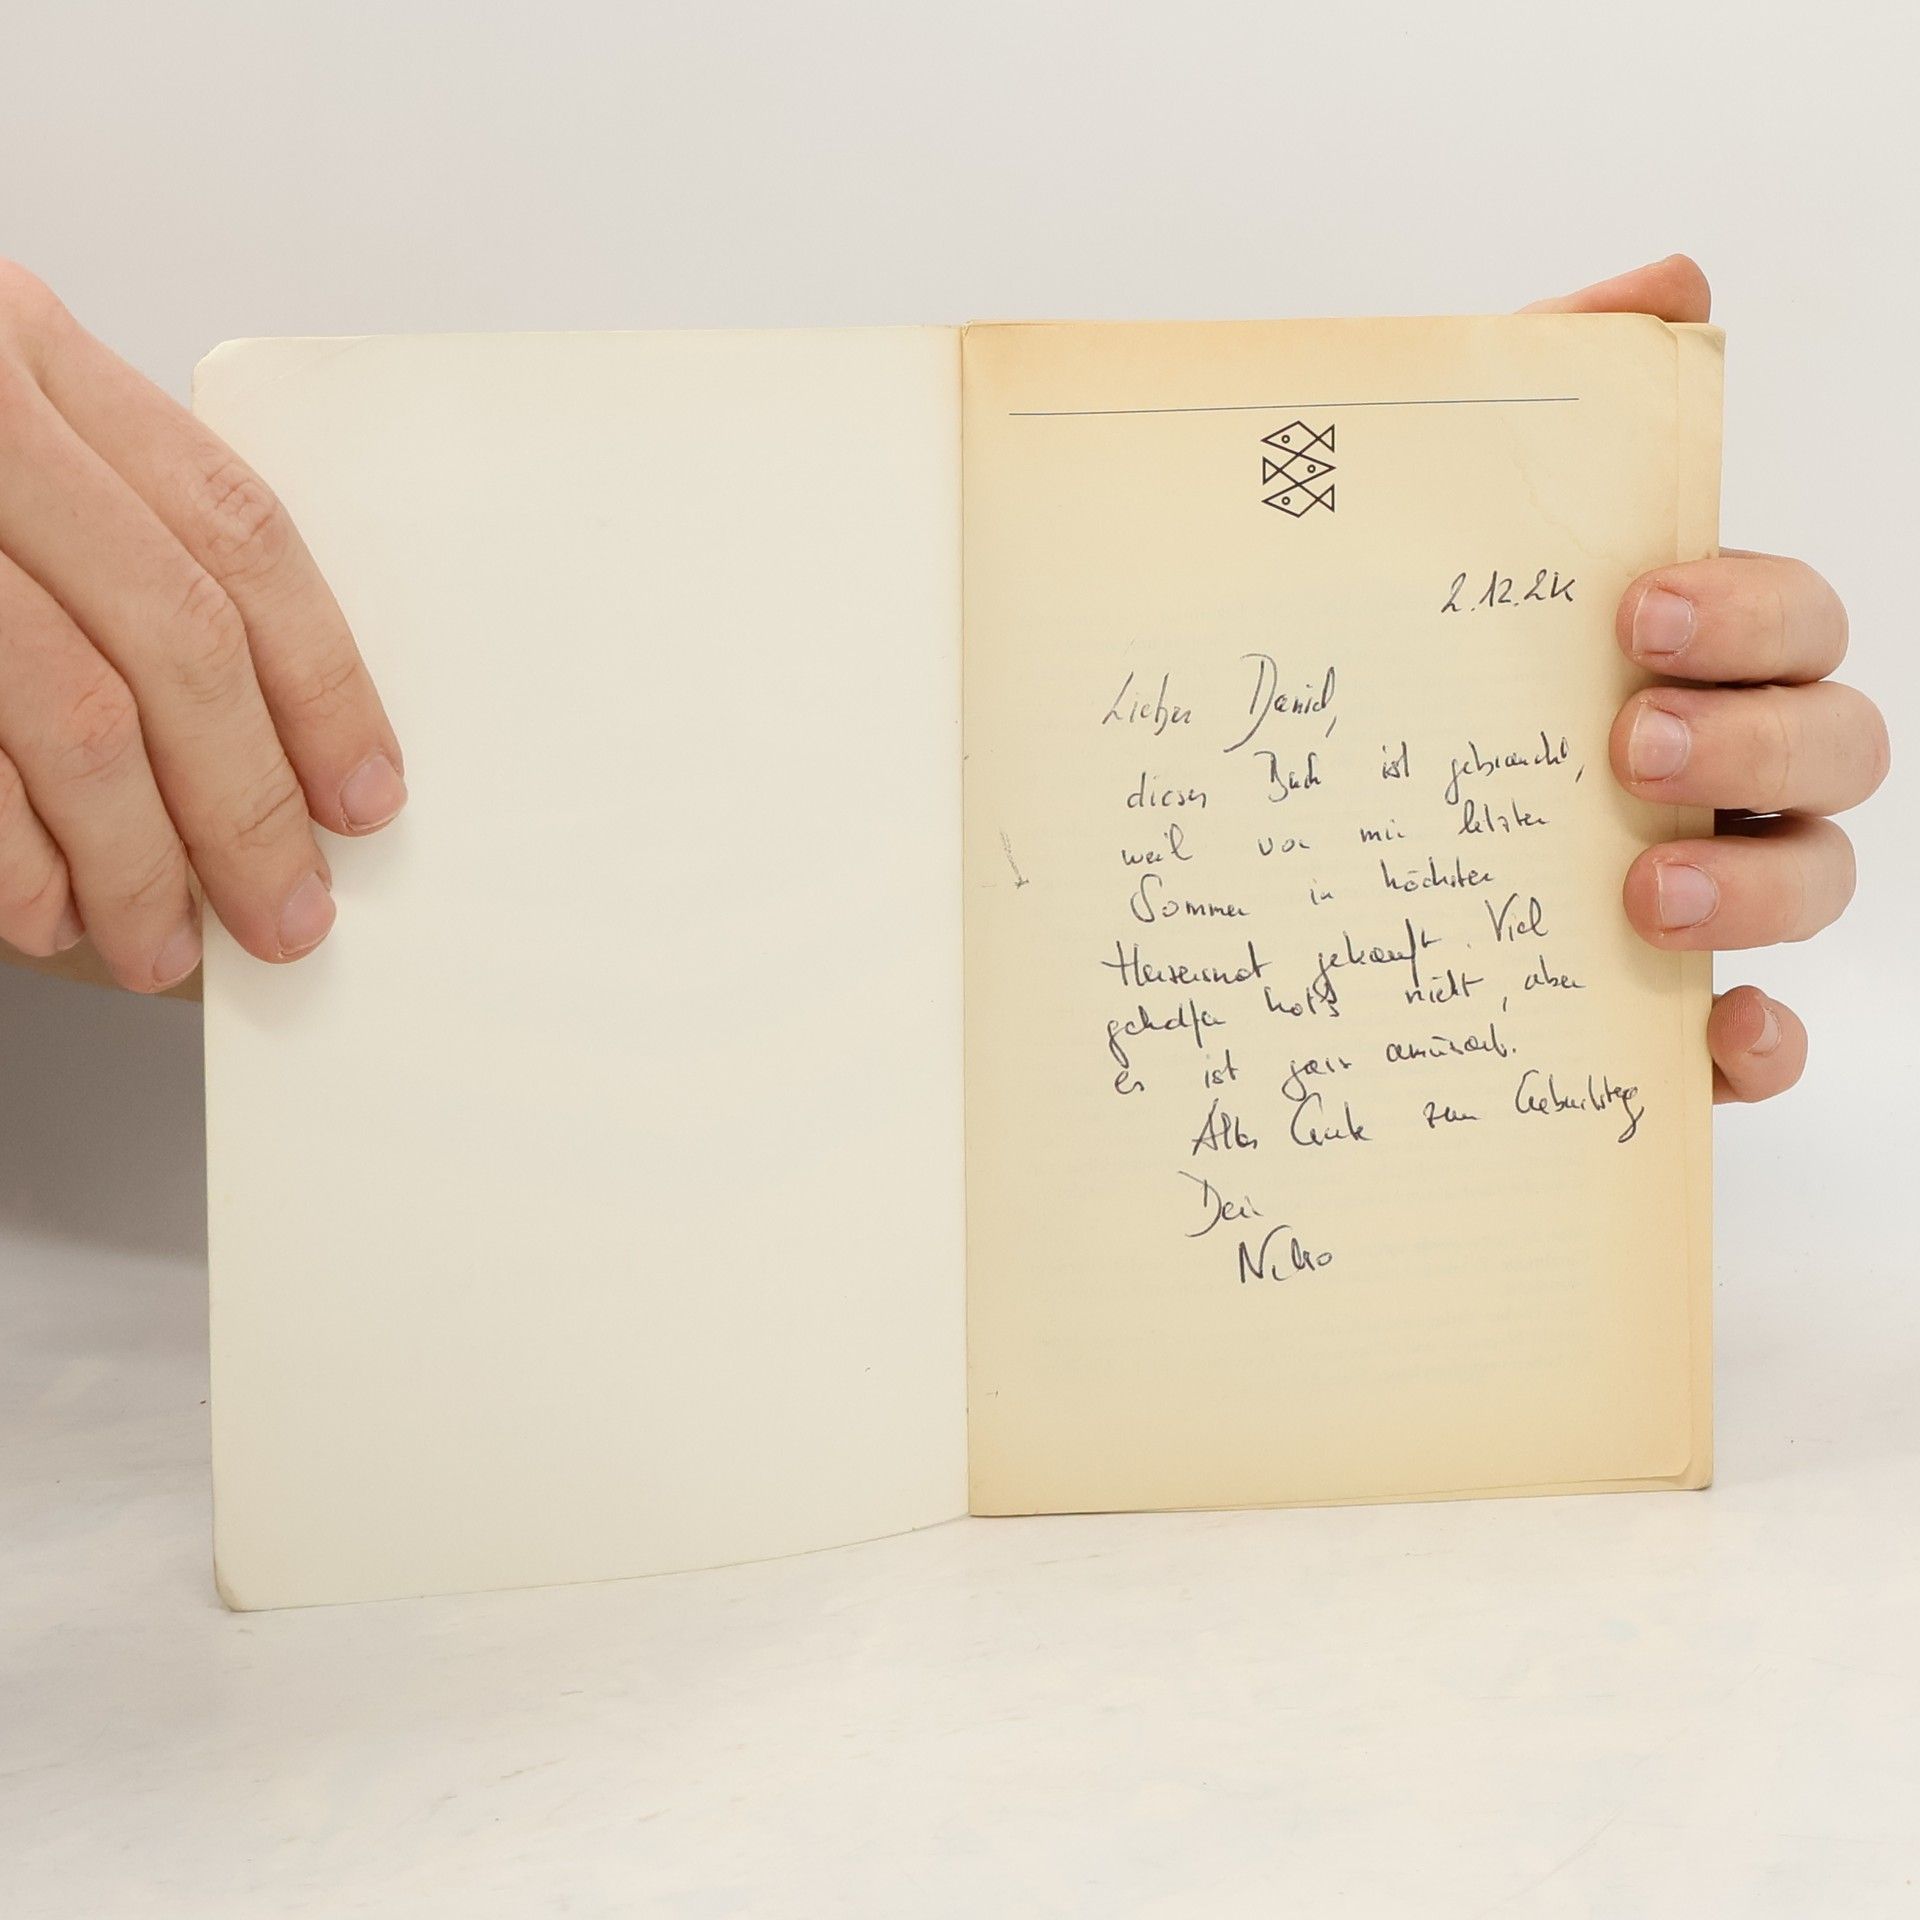 Lieber Daniel,
dieses Buch ist gebraucht,
weil von mir letzten
Sommer in höchster
gekauft. Viel
geholfen hat's nicht, aber
es ist ganz amüsant.
Alles Gute zum Geburtstag
Dein
Niko